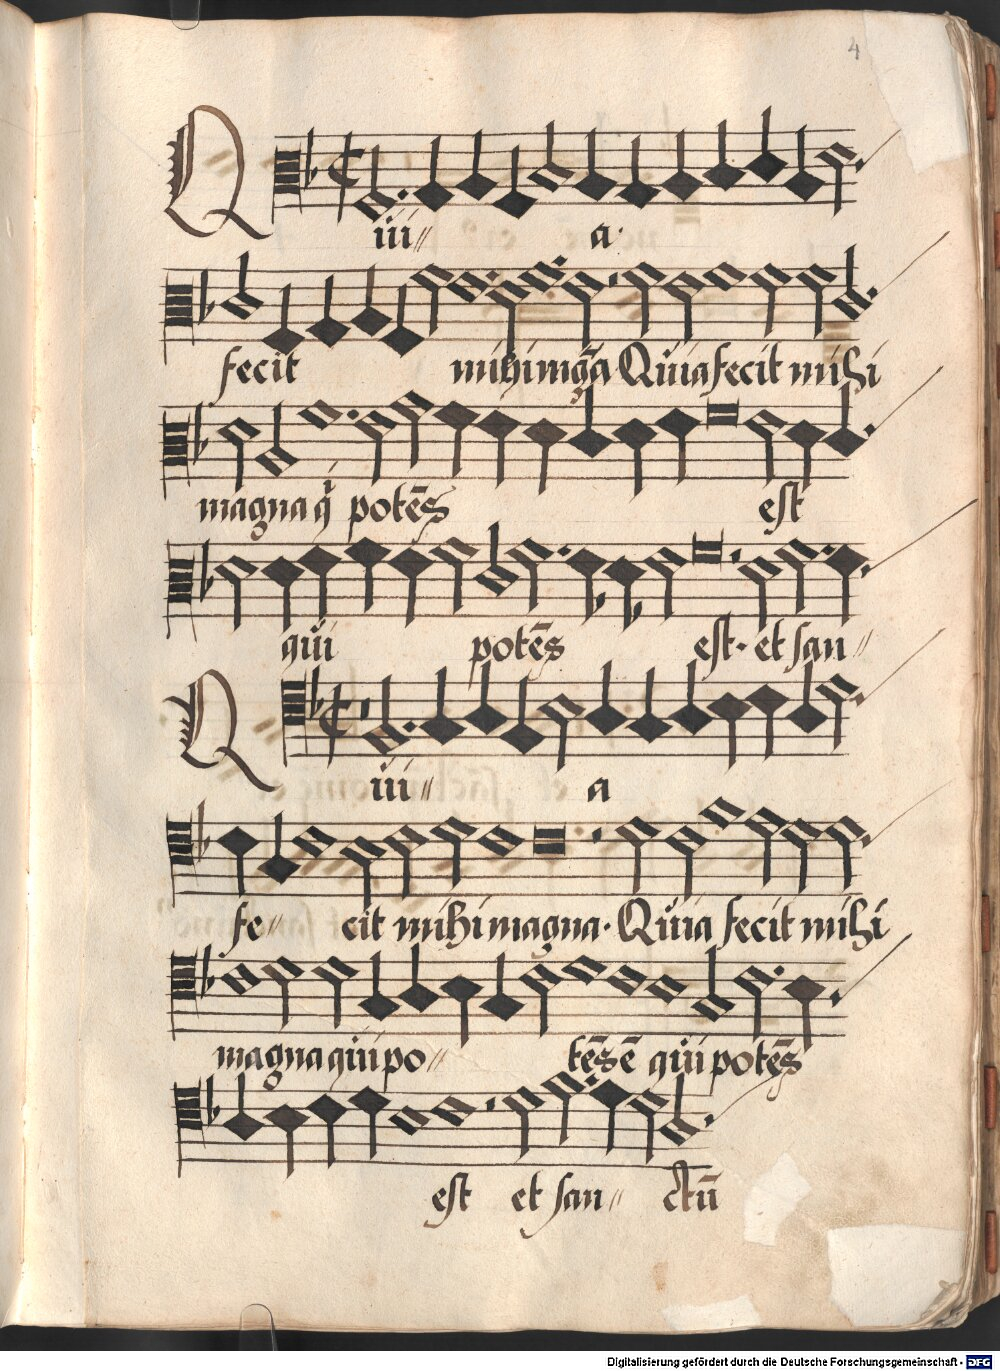 4
Quii〃 a·
fecit mihi mḡa Quia fecit mihi
magna q potēs est
qui potēs est· et san〃
Quii〃 a
fe〃 cit mihi magna· Quia fecit mihi
magna qui po〃 tēs ē qui potēs
est et san〃 ctū
Digitalisierung gefördert durch die Deutsche Forschungsgemeinschaft - DFG